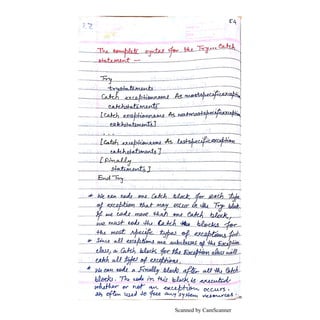 54
The complete syntax for the Try... Catch
statement —
Try
trystatements
Catch exceptionname As mostspecificexception
catchstatements
[Catch exceptionname As nextmostspecificexception
catchstatements]
...
[Catch exceptionname As leastspecificexception
catchstatements]
[Finally
statements]
End Try
* We can code one Catch block for each type
of exception that may occur in the Try block.
If we code more than one Catch block,
we must code the Catch blocks for
the most specific types of exceptions first.
* Since all exceptions are subclasses of the Exception
class, a Catch block for the Exception class will
catch all types of exceptions.
* We can code a Finally block after all the Catch
blocks. The code in this block is executed
whether or not an exception occurs.
It's often used to free any system resources.
Scanned by CamScanner